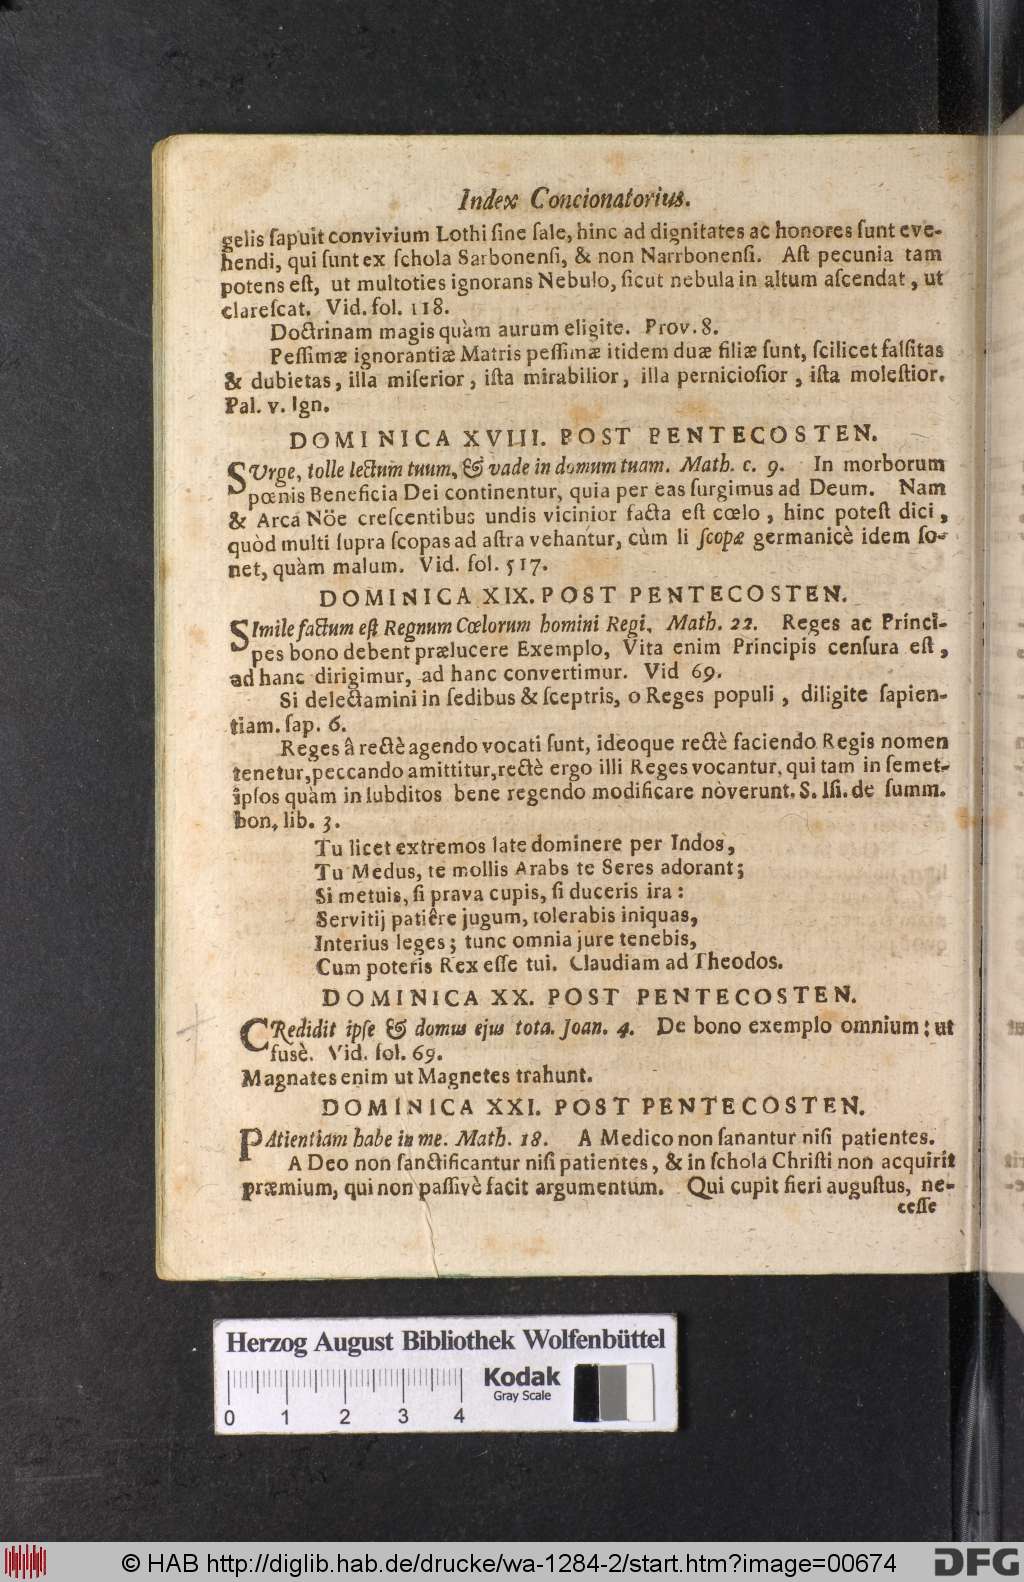 Index Concionatorius.
gelis ſapuit convivium Lothi ſine ſale, hinc ad dignitates ac honores ſunt eve-
hendi, qui ſunt ex ſchola Sarbonenſi, & non Narrbonenſi. Aſt pecunia tam
potens eſt, ut multoties ignorans Nebulo, ſicut nebula in altum aſcendat, ut
clareſcat. Vid. fol. 118.
Doctrinam magis quàm aurum eligite. Prov. 8.
Peſſimæ ignorantiæ Matris peſſimæ itidem duæ filiæ ſunt, ſcilicet falſitas
& dubietas, illa miſerior, iſta mirabilior, illa pernicioſior, iſta moleſtior.
Pal. v. Ign.
DOMINICA XVIII. POST PENTECOSTEN.
SUrge, tolle lectum tuum, & vade in domum tuam. Math. c. 9. In morborum
pœnis Beneficia Dei continentur, quia per eas ſurgimus ad Deum. Nam
& Arca Nöe creſcentibus undis vicinior facta eſt cœlo, hinc poteſt dici,
quòd multi ſupra ſcopas ad aſtra vehantur, cùm li ſcopæ germanicè idem ſo-
net, quàm malum. Vid. fol. 517.
DOMINICA XIX. POST PENTECOSTEN.
SImile factum eſt Regnum Cœlorum homini Regi, Math. 22. Reges ac Princi-
pes bono debent prælucere Exemplo, Vita enim Principis cenſura eſt,
ad hanc dirigimur, ad hanc convertimur. Vid 69.
Si delectamini in ſedibus & ſceptris, o Reges populi, diligite ſapien-
tiam. ſap. 6.
Reges â rectè agendo vocati ſunt, ideoque rectè faciendo Regis nomen
tenetur, peccando amittitur, rectè ergo illi Reges vocantur, qui tam in ſemet-
ipſos quàm in ſubditos bene regendo modificare nòverunt. S. Iſi. de ſumm.
bon, lib. 3.
Tu licet extremos late dominere per Indos,
Tu Medus, te mollis Arabs te Seres adorant;
Si metuis, ſi prava cupis, ſi duceris ira:
Servitij patiêre jugum, tolerabis iniquas,
Interius leges; tunc omnia jure tenebis,
Cum poteris Rex eſſe tui. Claudiam ad Theodos.
DOMINICA XX. POST PENTECOSTEN.
CRedidit ipſe & domus ejus tota. Joan. 4. De bono exemplo omnium: ut
fusè. Vid. fol. 69.
Magnates enim ut Magnetes trahunt.
DOMINICA XXI. POST PENTECOSTEN.
PAtientiam habe in me. Math. 18. A Medico non ſanantur niſi patientes.
A Deo non ſanctificantur niſi patientes, & in ſchola Chriſti non acquirit
præmium, qui non paſſivè facit argumentum. Qui cupit fieri auguſtus, ne-
ceſſe
Herzog August Bibliothek Wolfenbüttel
Kodak
Gray Scale
0 1 2 3 4
© HAB http://diglib.hab.de/drucke/wa-1284-2/start.htm?image=00674
DFG